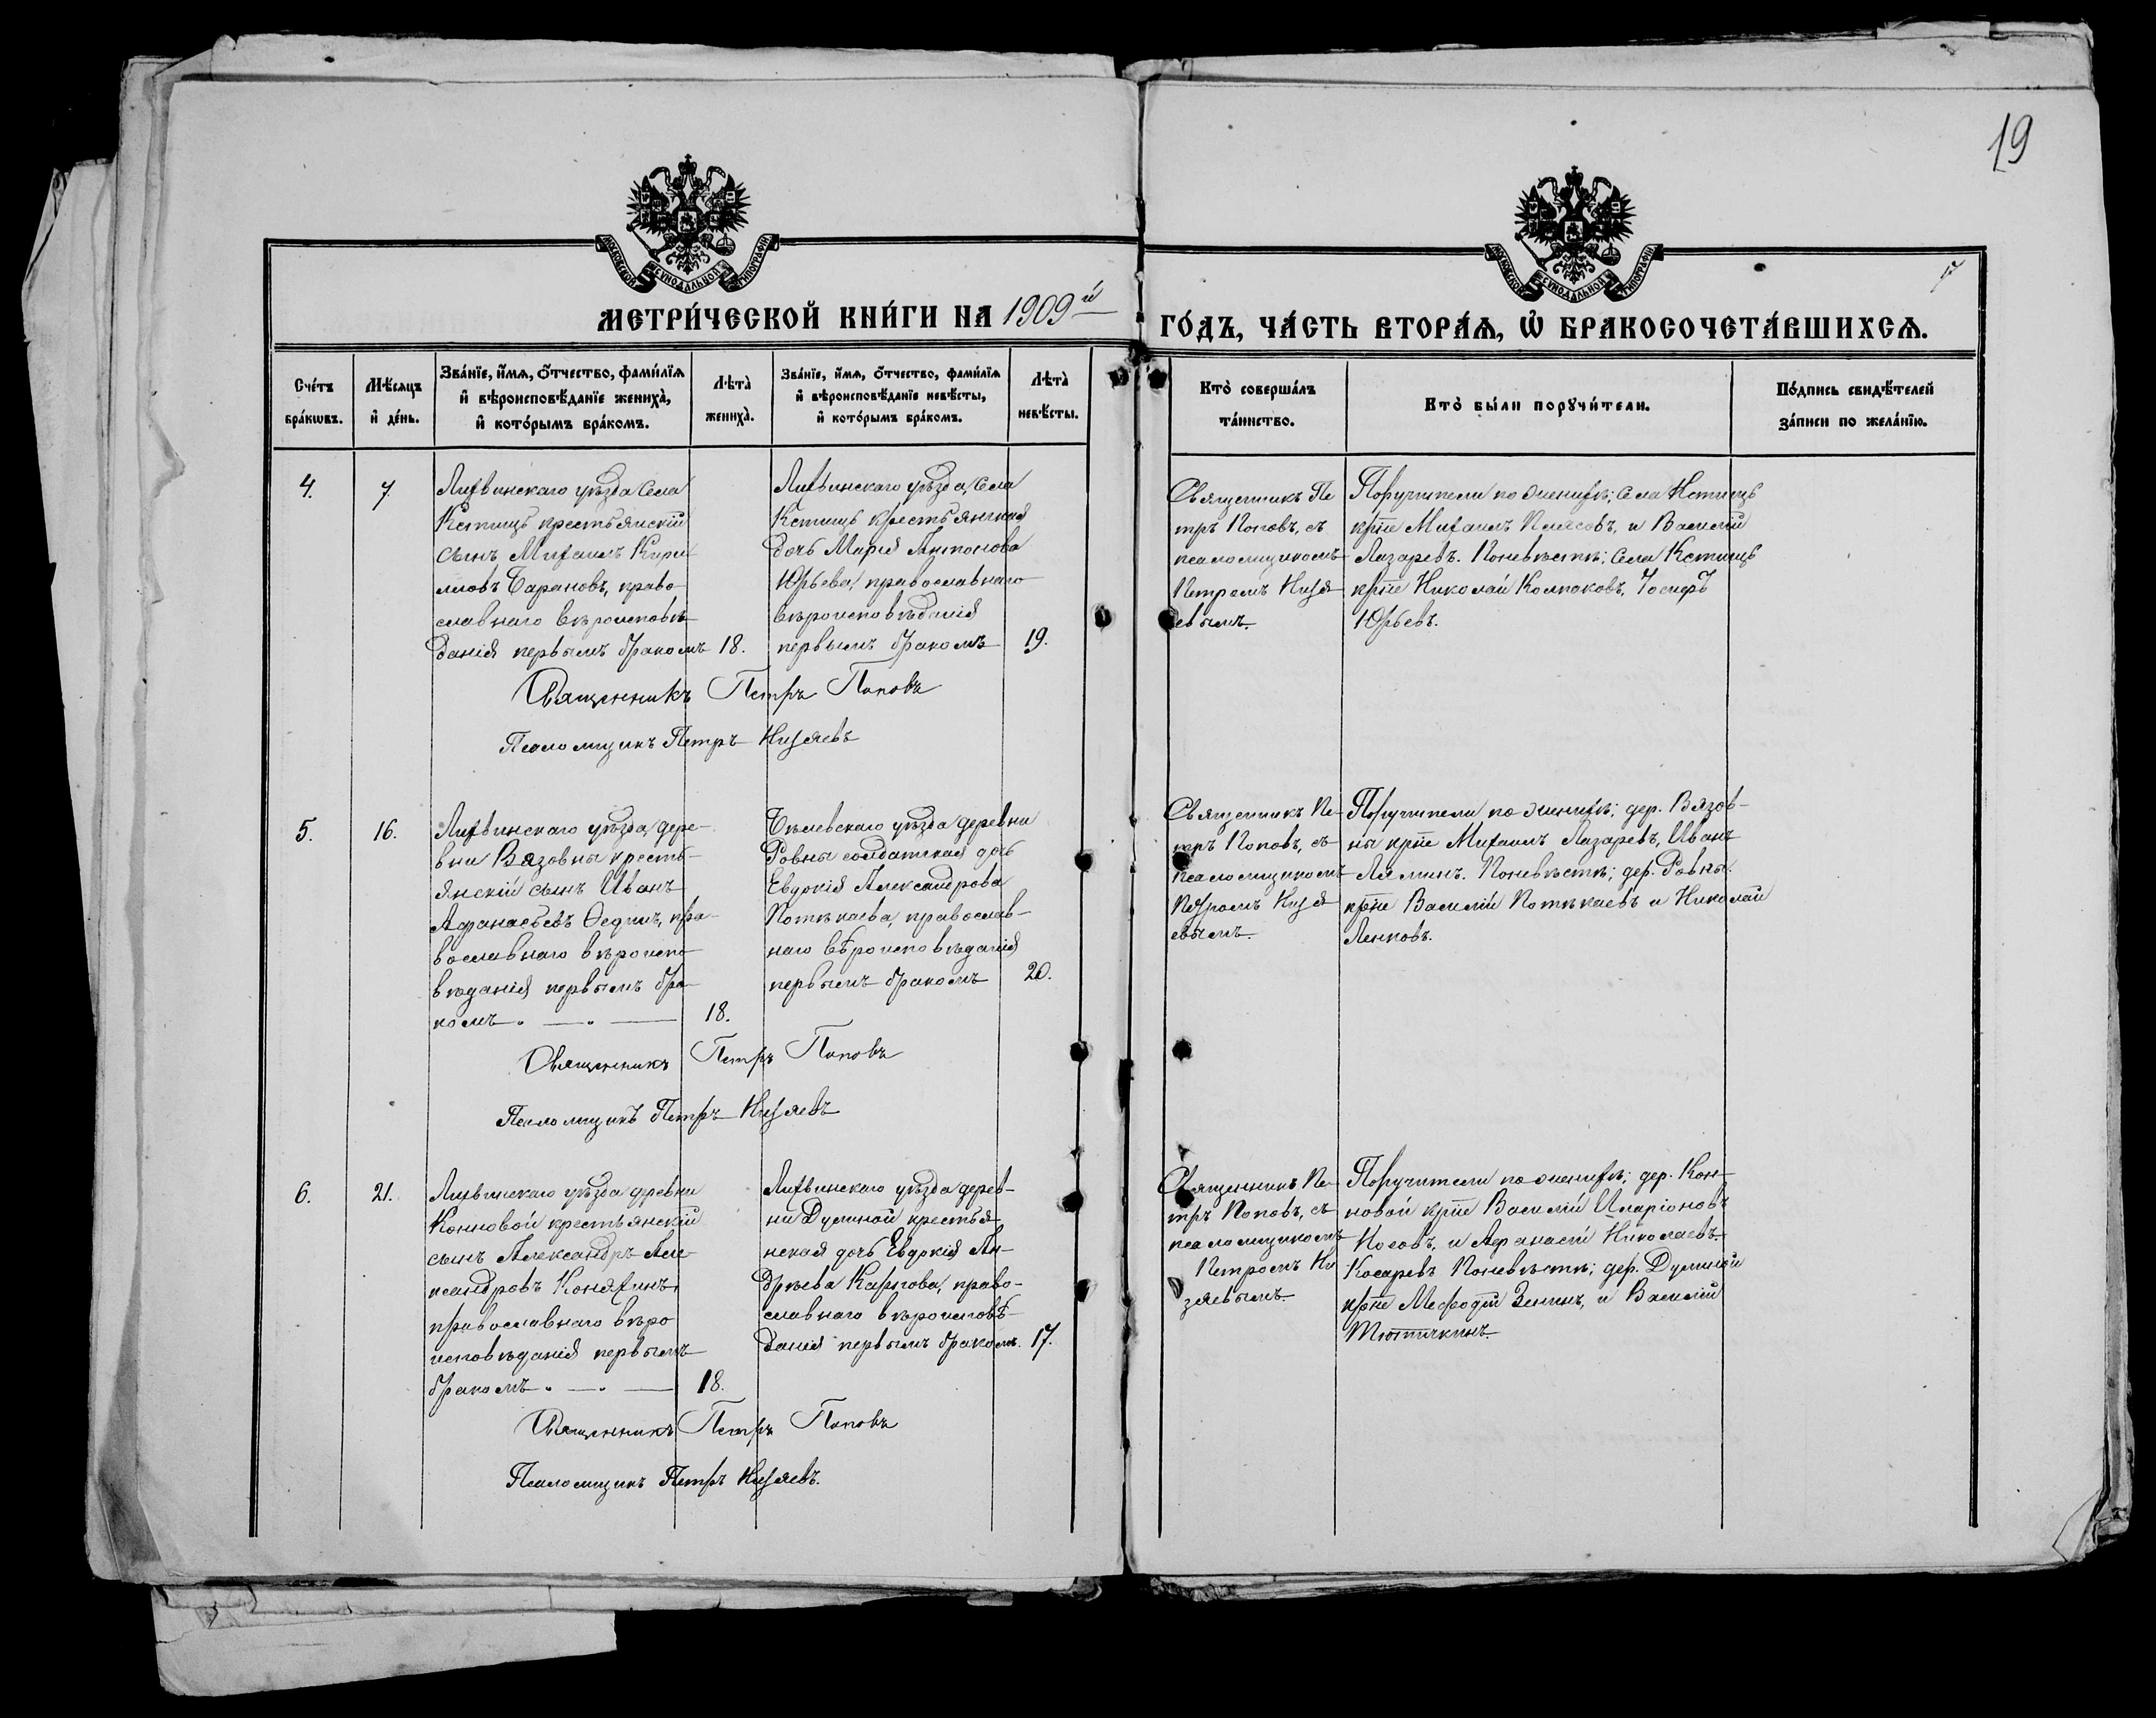 19
17
МОСКОВСКОЙ СѴНОДАЛЬНОЙ ТИПОГРАФІИ
МОСКОВСКОЙ СѴНОДАЛЬНОЙ ТИПОГРАФІИ
МЕТРИ́ЧЕСКОЙ КНИ́ГИ НА 1909й
ГО́ДЪ, ЧА́СТЬ ВТОРА́Ѧ, Ѡ҆ БРАКОСОЧЕТА́ВШИХСѦ.
Сче́тъ
бра́кѡвъ.
Мѣ́сяцъ
и҆ де́нь.
Зва́нїе, и҆́мѧ, ѻ҆́тчество, фами́лїѧ
и҆ вѣроисповѣ́данїе жениха̀,
и҆ кото́рымъ бра́комъ.
Лѣта̀
жениха̀.
Зва́нїе, и҆́мѧ, ѻ҆́тчество, фами́лїѧ
и҆ вѣроисповѣ́данїе невѣ́сты,
и҆ кото́рымъ бра́комъ.
Лѣта̀
невѣ́сты.
Кто̀ соверша́лъ
та́инство.
Кто̀ бы́ли порꙋчи́тели.
По́дпись свидѣ́телей
за́писи по жела́нїю.
4.
7.
Лихвинскаго уѣзда села
Кстищъ крестьянскій
сынъ Михаилъ Кири
лловъ Барановъ, право
славнаго вѣроисповѣ
данія первымъ бракомъ
18.
Лихвинскаго уѣзда, села
Кстищъ крестьянская
дочь Марія Антонова
Юрьева, православнаго
вѣроисповѣданія
первымъ бракомъ
19.
Священникъ Пе
тръ Поповъ, съ
псаломщикомъ
Петромъ Низя
евымъ.
Поручители по женихѣ; села Кстищъ
крᵗⁿᵉ Михаилъ Плясовъ, и Василій
Лазаревъ. По невѣстѣ; села Кстищъ
крᵗⁿᵉ Николай Колпаковъ, Іосифъ
Юрьевъ.
Священникъ Петръ Поповъ
Псаломщикъ Петръ Низяевъ
5.
16.
Лихвинскаго уѣзда, дере-
вни Вязовны кресть-
янскій сынъ Иванъ
Афанасьевъ Ѳединъ, пра-
вославнаго вѣроиспо
вѣданія первымъ бра-
комъ. — . —
18.
Бѣлевскаго уѣзда деревни
Ровны солдатская дочь
Евдокія Александрова
Потѣкаева, православ-
наго вѣроисповѣданія
первымъ бракомъ
20.
Священникъ Пе-
тръ Поповъ, съ
псаломщикомъ
Петромъ Низя
евымъ.
Поручители по женихѣ; дер. Вязов-
ны крᵗⁿᵉ Михаилъ Лазаревъ, Иванъ
Ляминъ. По невѣстѣ; дер. Ровны
крᵗⁿᵉ Василій Потѣкаевъ и Николай
Ленковъ.
Священникъ Петръ Поповъ
Псаломщикъ Петръ Низяевъ
6.
21.
Лихвинскаго уѣзда деревни
Конновой крестьянскій
сынъ Александръ Але-
ксандровъ Коняхинъ,
православнаго вѣро
исповѣданія первымъ
бракомъ. — . —
18.
Лихвинскаго уѣзда дерев-
ни Думиной крестья-
нская дочь Евдокія Ан-
дрѣева Карпова, право-
славнаго вѣроисповѣ-
данія первымъ бракомъ.
17.
Священникъ Пе-
тръ Поповъ, съ
псаломщикомъ
Петромъ Ни
зяевымъ.
Поручители по женихѣ; дер. Кон-
новой крᵗⁿᵉ Василій Иларіоновъ
Косовъ, и Афанасій Николаевъ
Косаревъ По невѣстѣ; дер. Думиной
крᵗⁿᵉ Мефодій Зенинъ, и Василій
Тютичкинъ.
Священникъ Петръ Поповъ
Псаломщикъ Петръ Низяевъ.